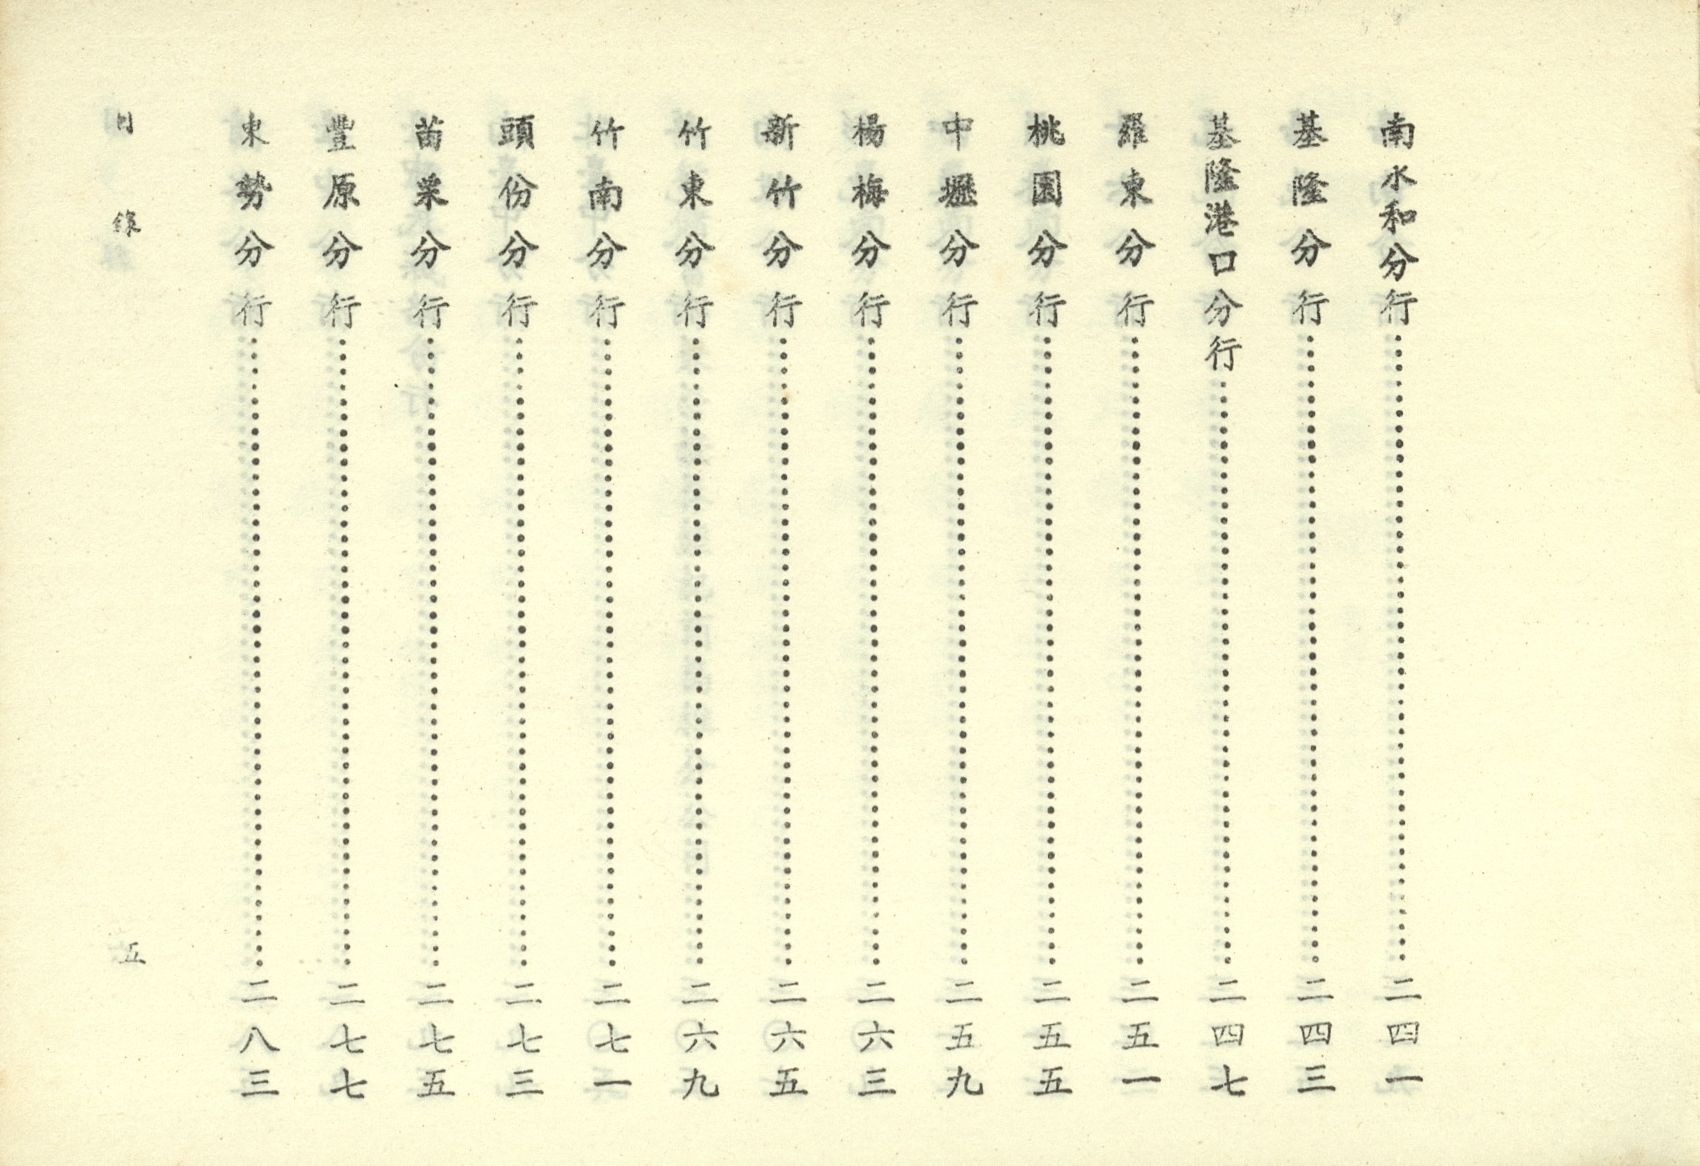 南水和分行………二四一
基隆分行………二四三
基隆港口分行………二四七
羅東分行………二五一
桃園分行………二五五
中壢分行………二五九
楊梅分行………二六三
新竹分行………二六五
竹東分行………二六九
竹南分行………二七一
頭份分行………二七三
苗栗分行………二七五
豐原分行………二七七
東勢分行………二八三
目錄
五